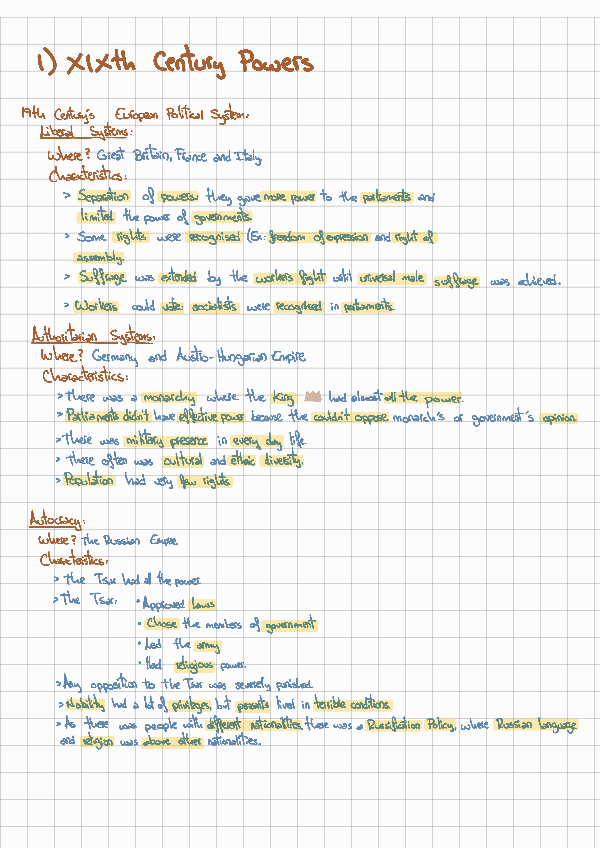 1) XIXth Century Powers
19th Century's European Political System:
Liberal Systems:
Where? Great Britain, France and Italy
Characteristics:
> Separation of powers: they gave more power to the parliaments and
limited the power of governments.
> Some rights were recognised (Ex: freedom of expression and right of
assembly.
> Suffrage was extended by the workers fight until universal male suffrage was achieved.
> Workers could vote: socialists were recognised in parliaments.
Authoritarian Systems:
Where? Germany and Austro-Hungarian Empire
Characteristics:
> There was a monarchy where the King had almost all the power.
> Parliaments didn't have effective power because the couldn't oppose monarch's or government's opinion.
> There was military presence in every day life.
> There often was cultural and ethnic diversity.
> Population had very few rights.
Autocracy:
Where? The Russian Empire
Characteristics:
> The Tsar had all the power.
> The Tsar: • Approved laws
• Chose the members of government
• Led the army
• Had religious power.
> Any opposition to the Tsar was severely punished.
> Nobility had a lot of privileges, but peasants lived in terrible conditions.
> As there was people with different nationalities, there was a Russification Policy, where Russian language
and religion was above other nationalities.